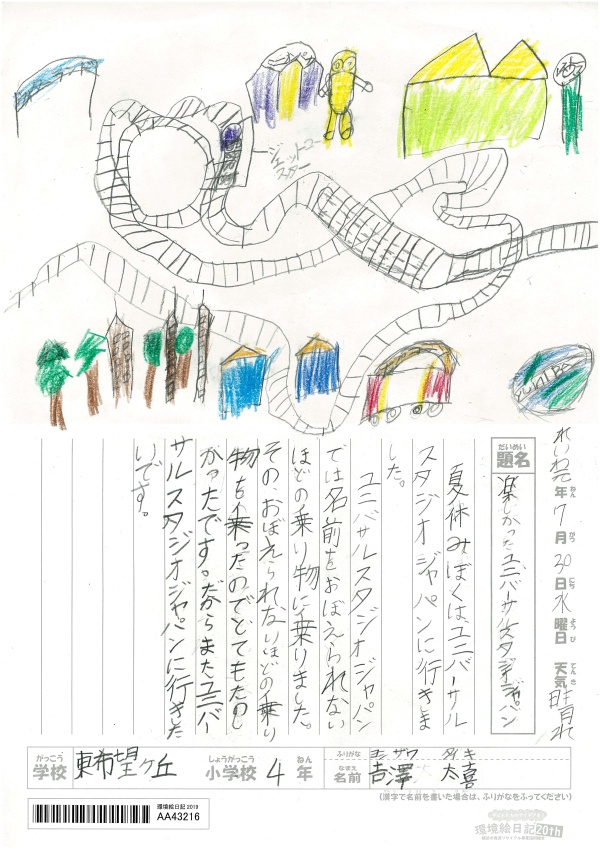 ジェットコースター
れいわ元年7月30日水曜日 天気 晴れ
だいめい
題名 楽しかったユニバーサルスタジオジャパン
夏休みぼくは、ユニバーサル
スタジオジャパンに行きま
した。
ユニバサルスタジオジャパン
では名前をおぼえられない
ほどの乗り物に乗りました。
その、おぼえられないほどの乗り
物も乗ったのでとてもたのし
かったです。だからまたユニバー
サルスタジオジャパンに行きた
いです。
がっこう しょうがっこう ねん
学校 東希望ヶ丘 小学校 4年
ふりがな ヨシザワ タイキ
なまえ
名前 吉澤 太喜
(漢字で名前を書いた場合は、ふりがなをふってください)
環境絵日記 2019
AA43216
環境絵日記 20th